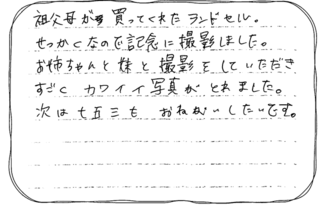 祖父母が買ってくれたランドセル。
せっかくなので記念に撮影しました。
お姉ちゃんと妹と撮影をしていただき
すごくカワイイ写真がとれました。
次は七五三もおねがいしたいです。